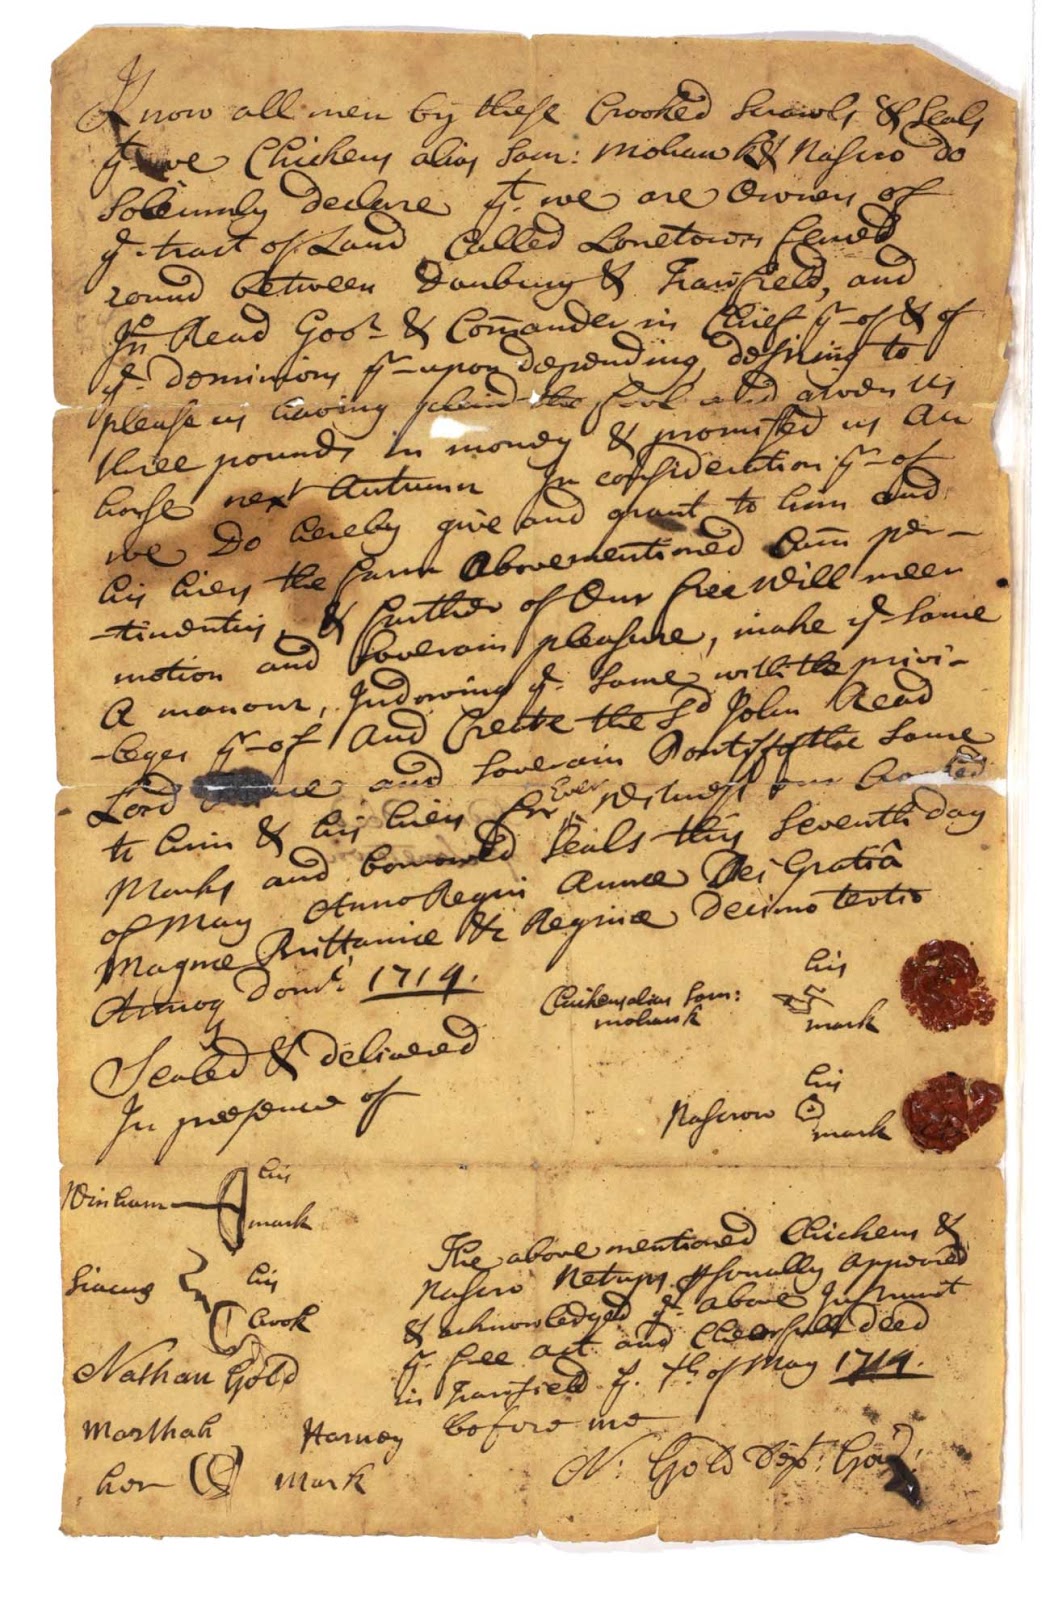 Know all men by these Crooked Scrawls & Seals
yt we Chickens alias Sam: Mohawk & Nasero do
Solemnly Declare yt we are Owners of
ye tract of Land Called Lonetown fenced
round between Danbury & Fairfield, and
Jn Read Govr & Comander in Chief yr-of & of
ye Dominions yr-upon depending desiring to
please us having the and given us
three pounds in money & promised us An
horse next Autumn In consideration yr-of
we Do hereby give and grant to him and
his hiers the farm Abovementioned Cum per-
-tinentiis, & further of Our free Will meer
motion and Soverain pleasure, make ye Same
A manour, Indowing ye same with the privi-
-leges yr-of And Create the Sd John Read
Lord and Soverain Pontif of the Same
to him & his hiers for Ever Witness our Crooked
Marks and borrowed Seals this Seventh day
of May Anno Regni Annæ Dei Gratiâ
Magnæ Brittaniæ &c Reginæ Decimo tertio
Annoq Domi: 1714.
Chickens alias Sam: his
mohawk mark
Sealed & delivered
In presence of
Nascrow his
mark
Winham his
mark
his
hook
Nathan Gold
Marthah Harney
her mark
The abovementioned Chickens &
Nasero psonally Appeared
& acknowledged ye above Instrument
yr free act and Chearfull deed
in Fairfield ye 7th of May 1714.
before me
N: Gold Dept: Govr: